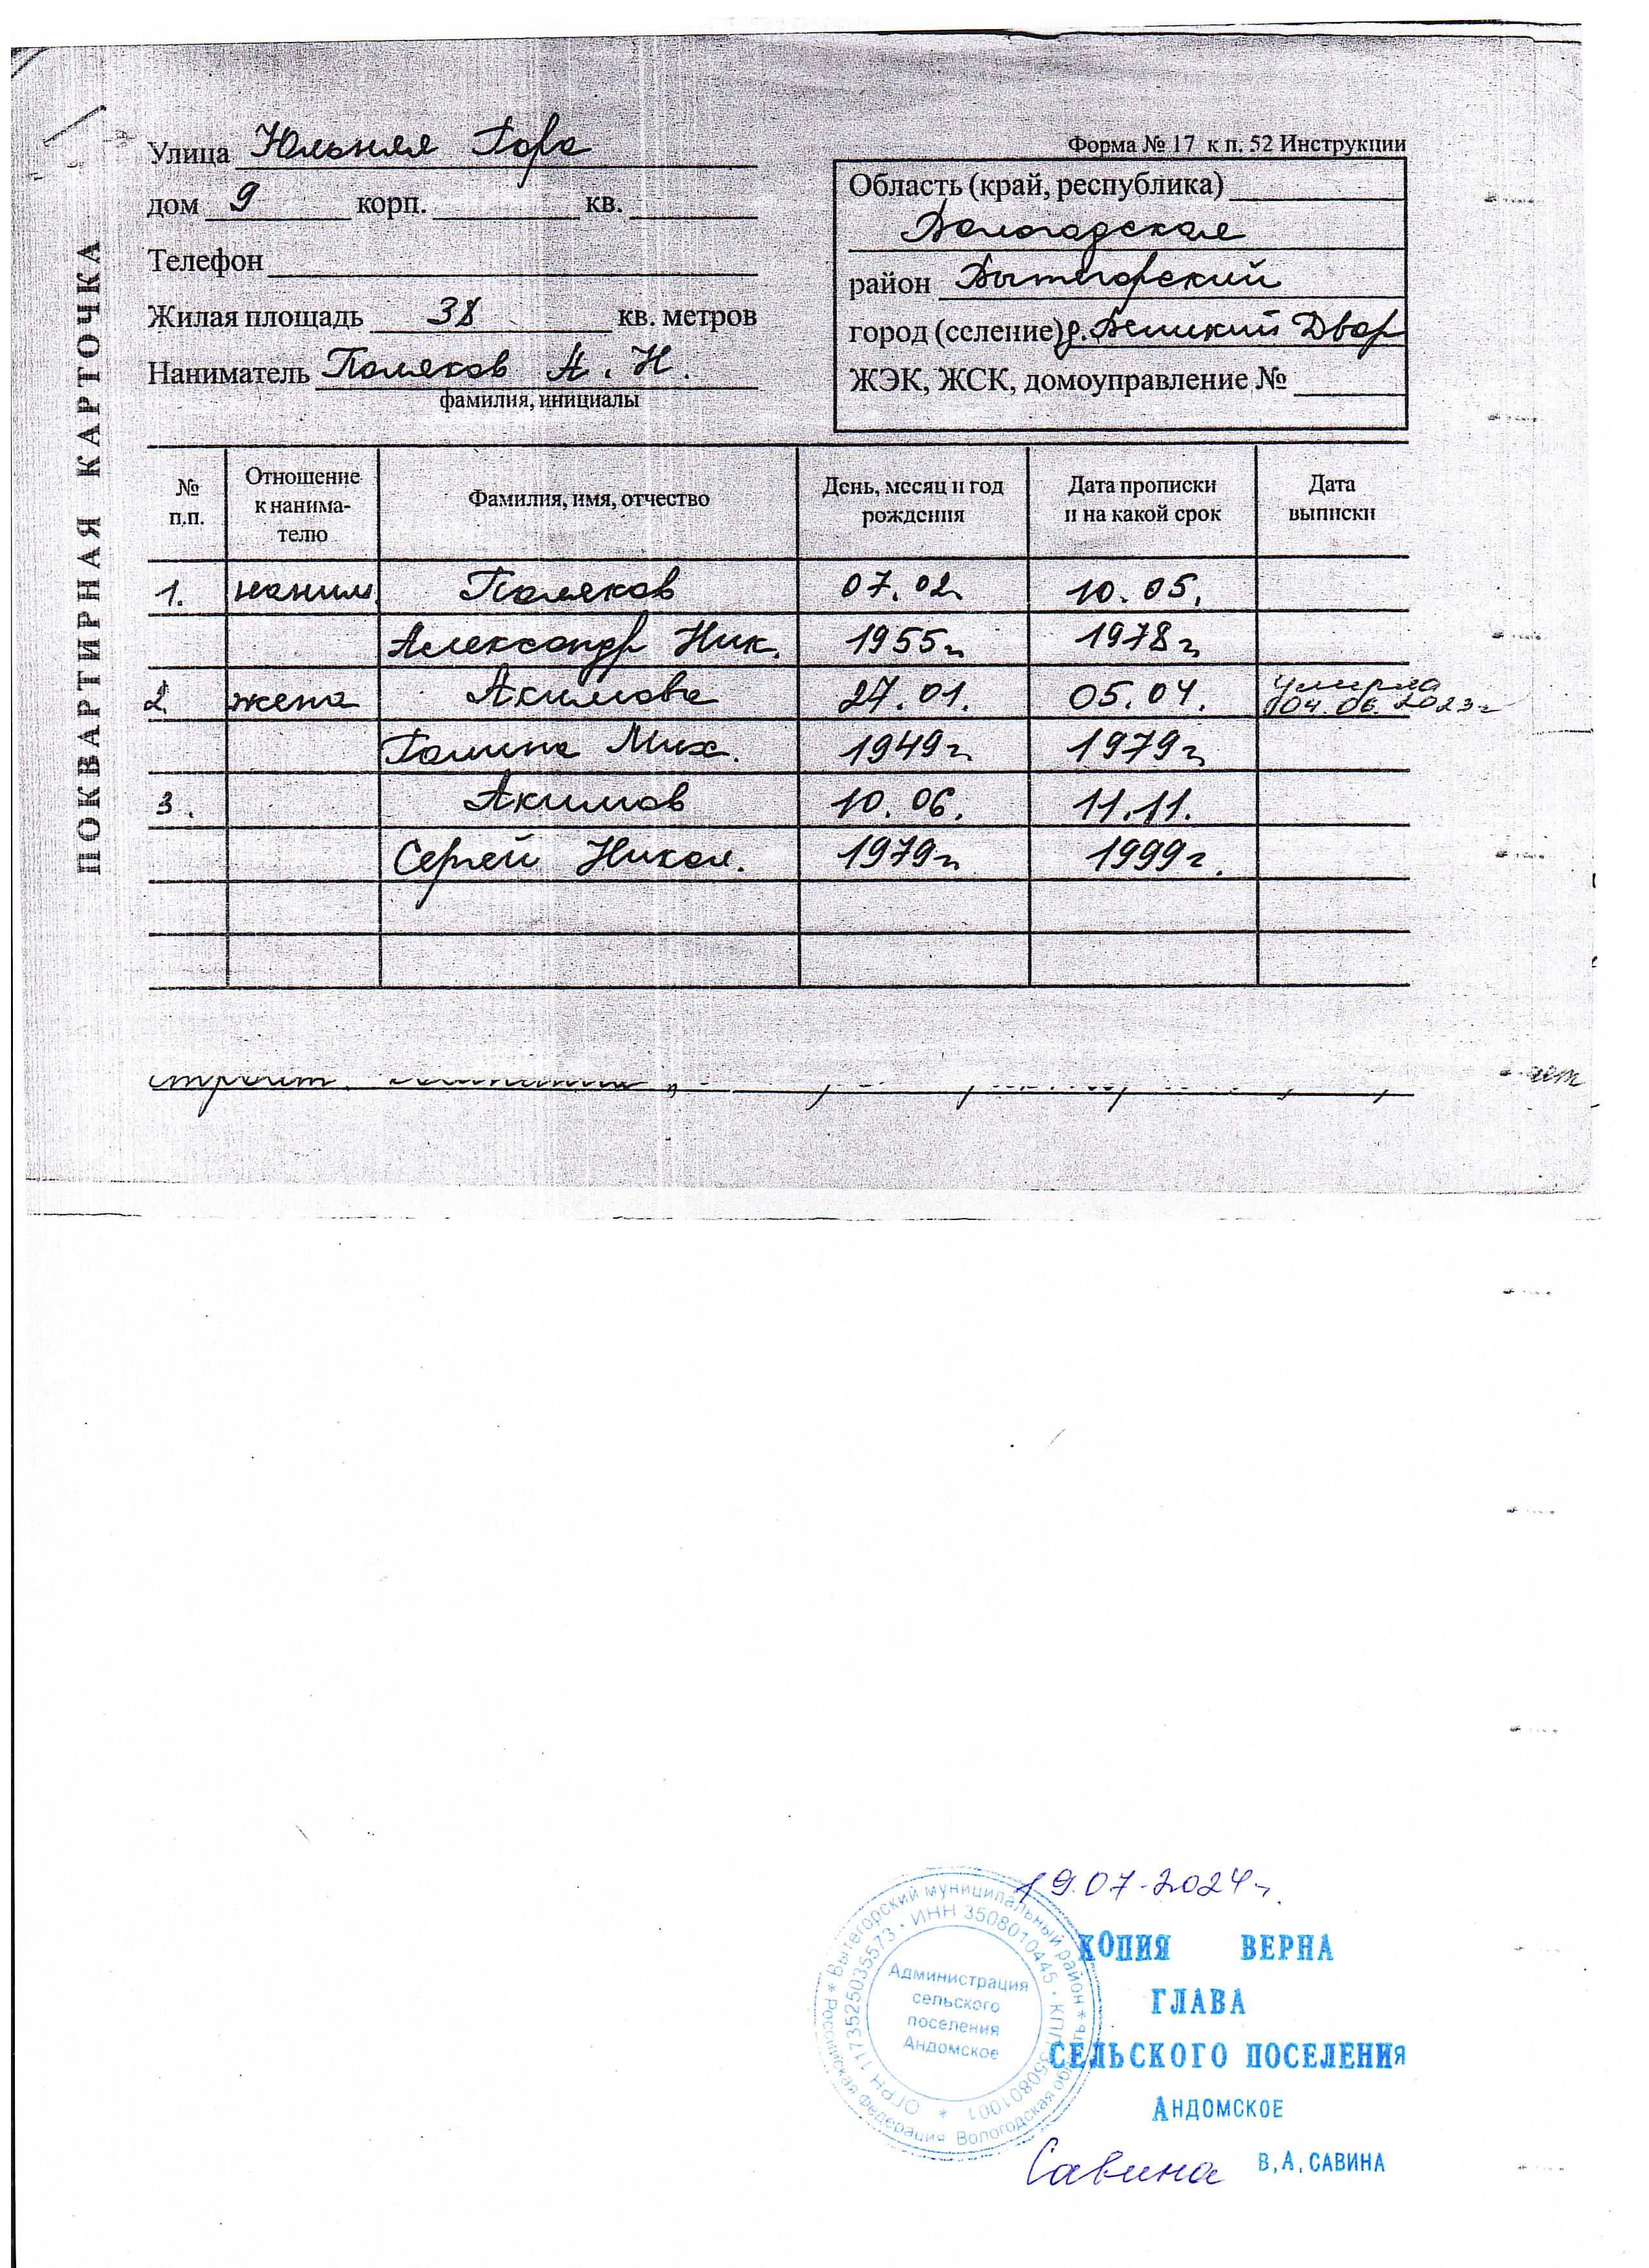 ПОКВАРТИРНАЯ КАРТОЧКА
Форма № 17 к п. 52 Инструкции
Улица Юльняя Гора
дом 9 корп. кв.
Телефон
Жилая площадь 38 кв. метров
Наниматель Поляков А. Н.
фамилия, инициалы
Область (край, республика)
Вологодская
район Вытегорский
город (селение) д. Великий Двор
ЖЭК, ЖСК, домоуправление №
№ п.п. Отношение к нанима- телю Фамилия, имя, отчество День, месяц и год рождения Дата прописки и на какой срок Дата выписки
1. наним. Поляков 07.02. 10.05.
Александр Ник. 1955г 1978г
2 жена Акимова 27.01. 05.04. умерла 04.06.2023г
Галина Мих. 1949г 1979г
3. Акимов 10.06. 11.11.
Сергей Никол. 1979г 1999г.
19.07.2024г.
КОПИЯ ВЕРНА
ГЛАВА
СЕЛЬСКОГО ПОСЕЛЕНИЯ
АНДОМСКОЕ
Савина В.А.САВИНА
Российская Федерация Вологодская область * Вытегорский муниципальный район *
ОГРН 1173525035573 • ИНН 3508010445 • КПП 350801001 *
Администрация
сельского
поселения
Андомское